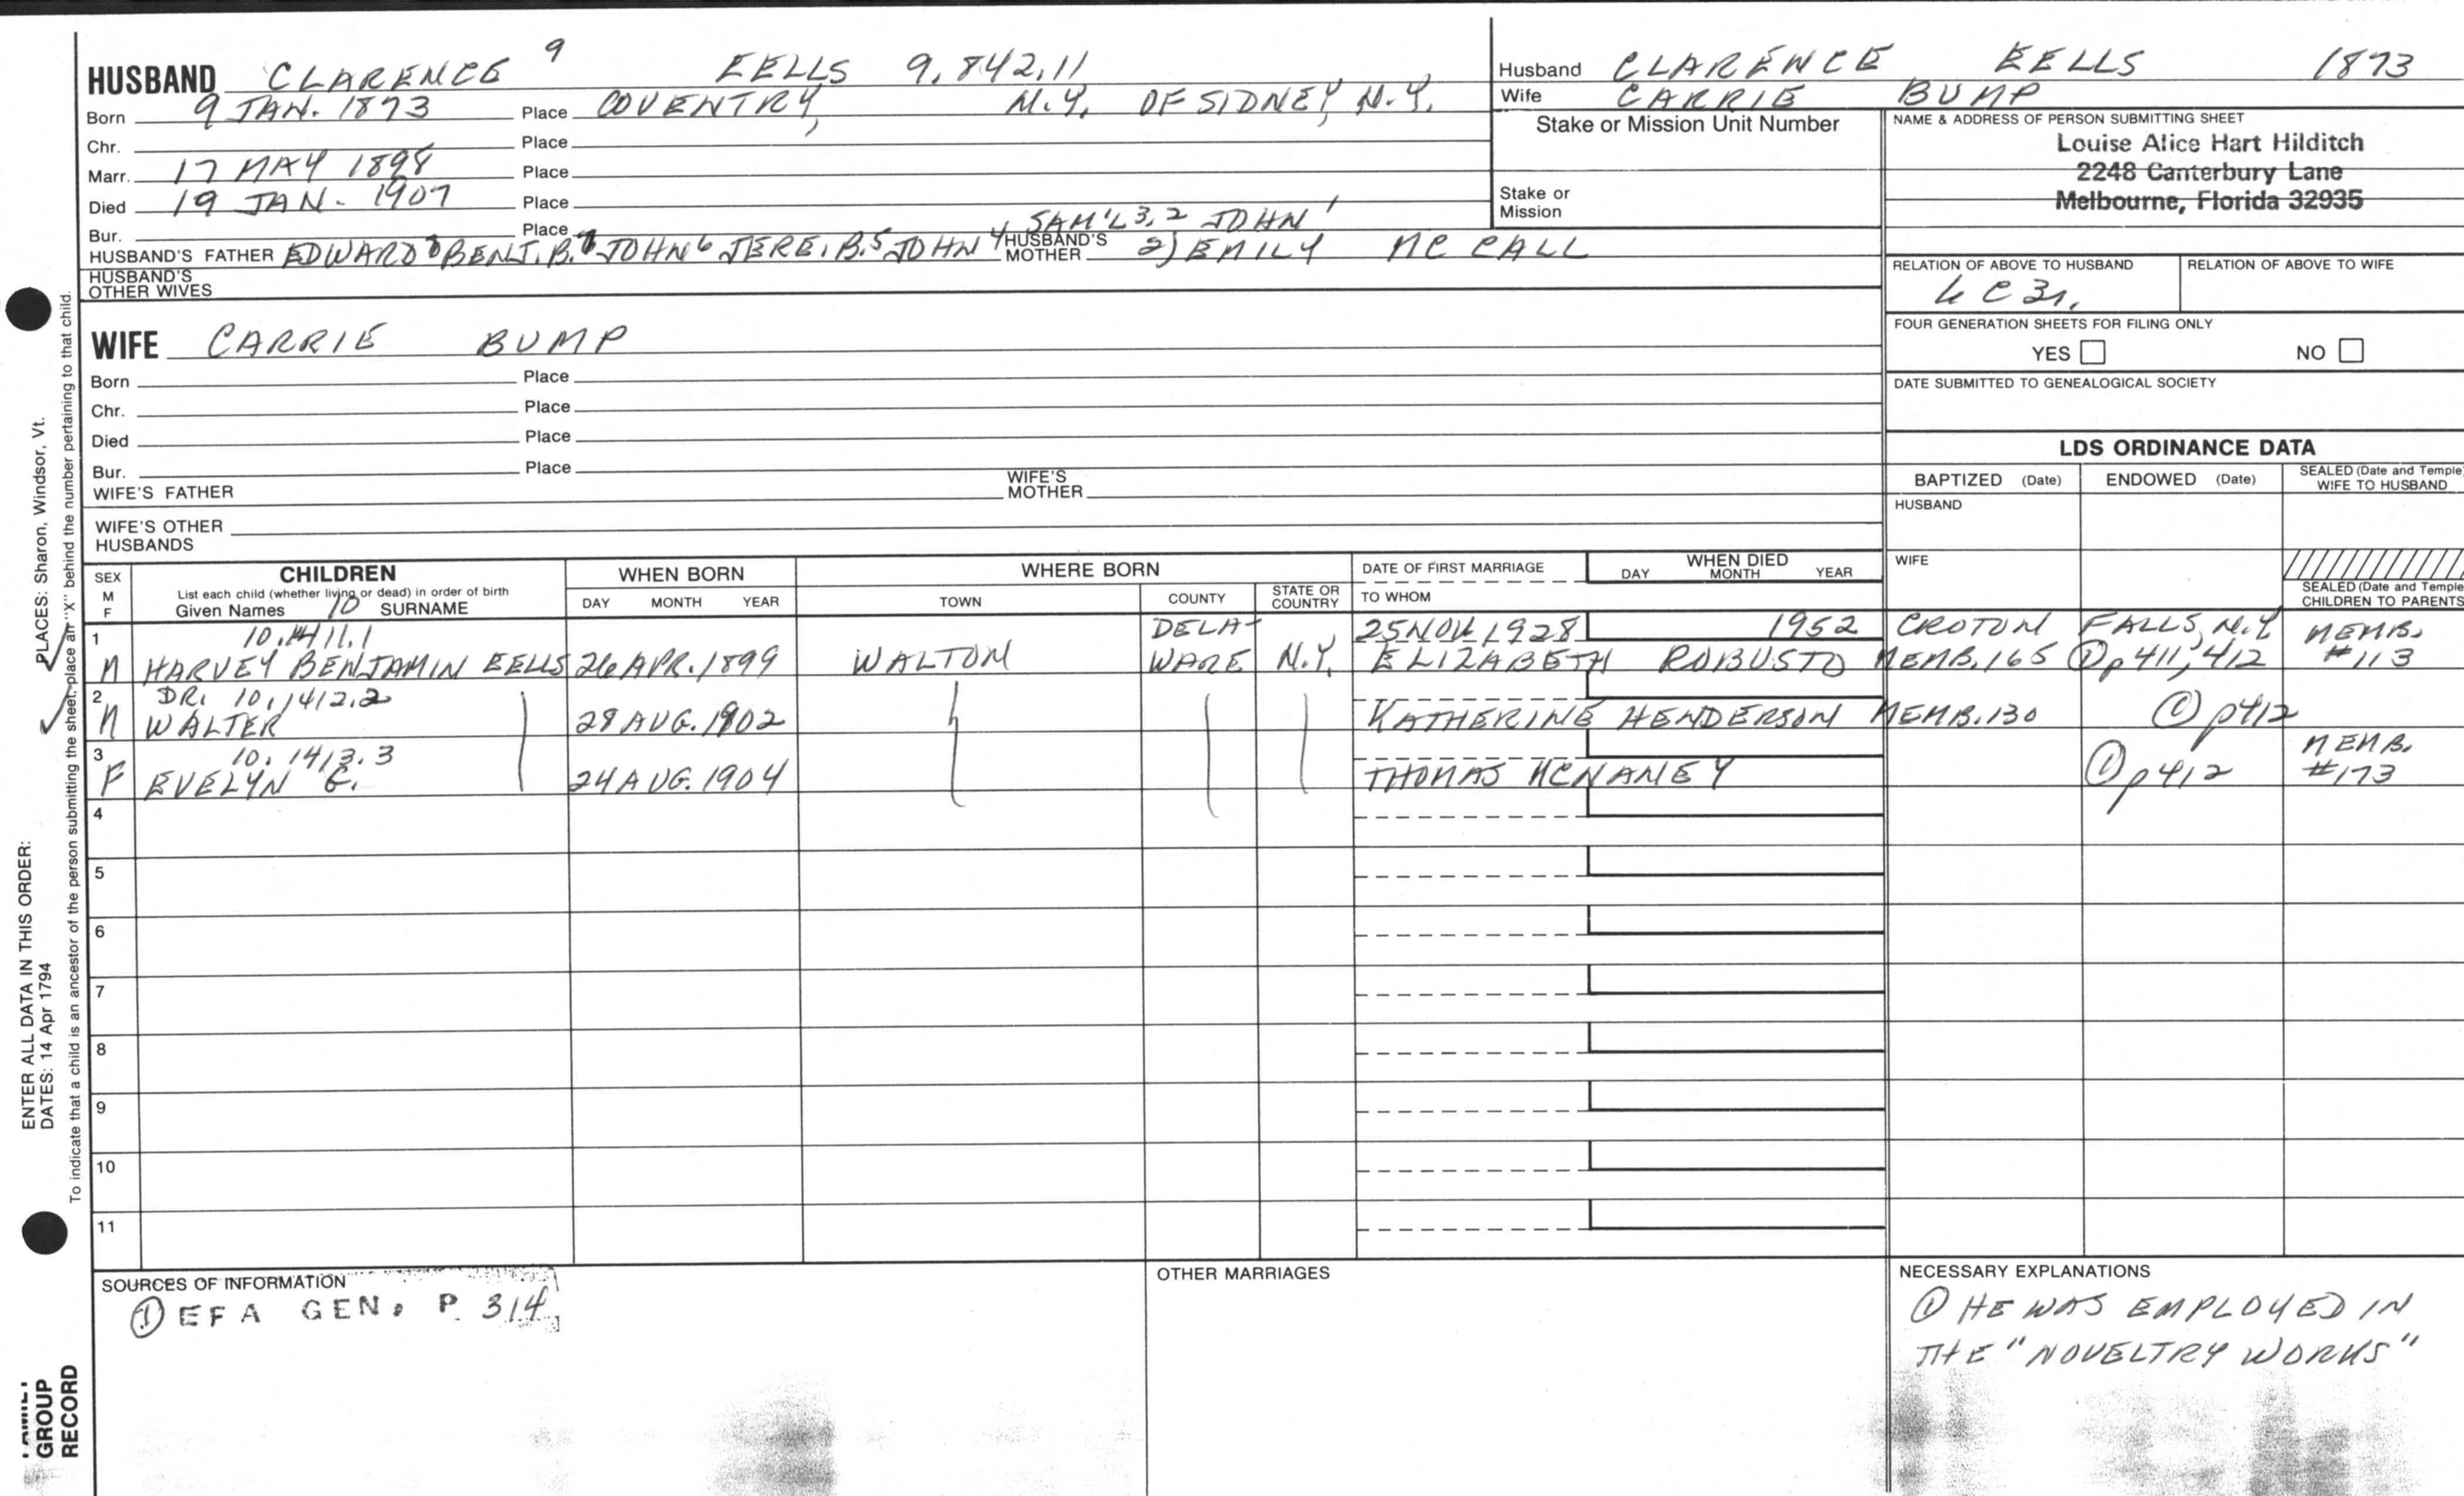 HUSBAND CLARENCE 9 EELLS 9,842,11
Born 9 JAN. 1873 Place COVENTRY, N.Y. OF SIDNEY, N.Y.
Chr. Place
Marr. 17 MAY 1898 Place
Died 19 JAN. 1907 Place
Bur. Place SAM'L 3,2 JOHN 1
HUSBAND'S FATHER EDWARD 8 BENJ. B. 7 JOHN 6 JERE. B. 5 JOHN 4 HUSBAND'S MOTHER 2) EMILY MC CALL
HUSBAND'S OTHER WIVES
Husband CLARENCE EELLS 1873
Wife CARRIE BUMP
Stake or Mission Unit Number
Stake or Mission
NAME & ADDRESS OF PERSON SUBMITTING SHEET
Louise Alice Hart Hilditch
2248 Canterbury Lane
Melbourne, Florida 32935
RELATION OF ABOVE TO HUSBAND RELATION OF ABOVE TO WIFE
FOUR GENERATION SHEETS FOR FILING ONLY
YES NO
DATE SUBMITTED TO GENEALOGICAL SOCIETY
WIFE CARRIE BUMP
Born Place
Chr. Place
Died Place
Bur. Place
WIFE'S FATHER WIFE'S MOTHER
WIFE'S OTHER HUSBANDS
LDS ORDINANCE DATA
BAPTIZED (Date) ENDOWED (Date) SEALED (Date and Temple) WIFE TO HUSBAND
HUSBAND
WIFE
SEALED (Date and Temple) CHILDREN TO PARENTS
SEX M F CHILDREN WHEN BORN WHERE BORN DATE OF FIRST MARRIAGE WHEN DIED
List each child (whether living or dead) in order of birth
Given Names 10 SURNAME DAY MONTH YEAR TOWN COUNTY STATE OR COUNTRY TO WHOM DAY MONTH YEAR
1 10,1411.1 DELA- 25 NOV. 1928 1952 CROTON FALLS, N.Y. MEMB.
M HARVEY BENJAMIN EELLS 26 APR. 1899 WALTON WARE N.Y. ELIZABETH ROBUSTO MEMB. 165 ① p 411, 412 #113
2 DR. 10,1412.2
M WALTER 28 AUG. 1902 KATHERINE HENDERSON MEMB. 130 ① p412
3 10,1413.3 MEMB.
F EVELYN E. 24 AUG. 1904 THOMAS MCNANEY ① p 412 #173
4
5
6
7
8
9
10
11
SOURCES OF INFORMATION
① EFA GEN. P 314
OTHER MARRIAGES
NECESSARY EXPLANATIONS
① HE WAS EMPLOYED IN
THE "NOVELTRY WORKS"
PLACES: Sharon, Windsor, Vt.
ENTER ALL DATA IN THIS ORDER:
DATES: 14 Apr 1794
To indicate that a child is an ancestor of the person submitting the sheet, place an "X" behind the number pertaining to that child.
FAMILY
GROUP
RECORD